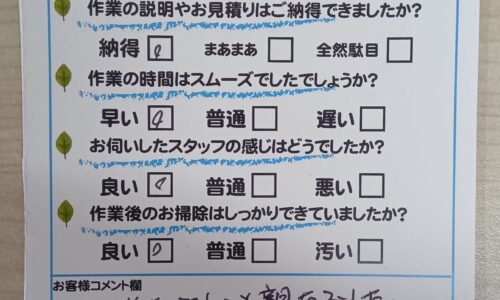 作業の説明やお見積りはご納得できましたか?
納得 まあまあ 全然駄目
作業の時間はスムーズでしたでしょうか?
早い 普通 遅い
お伺いしたスタッフの感じはどうでしたか?
良い 普通 悪い
作業後のお掃除はしっかりできていましたか?
良い 普通 汚い
お客様コメント欄